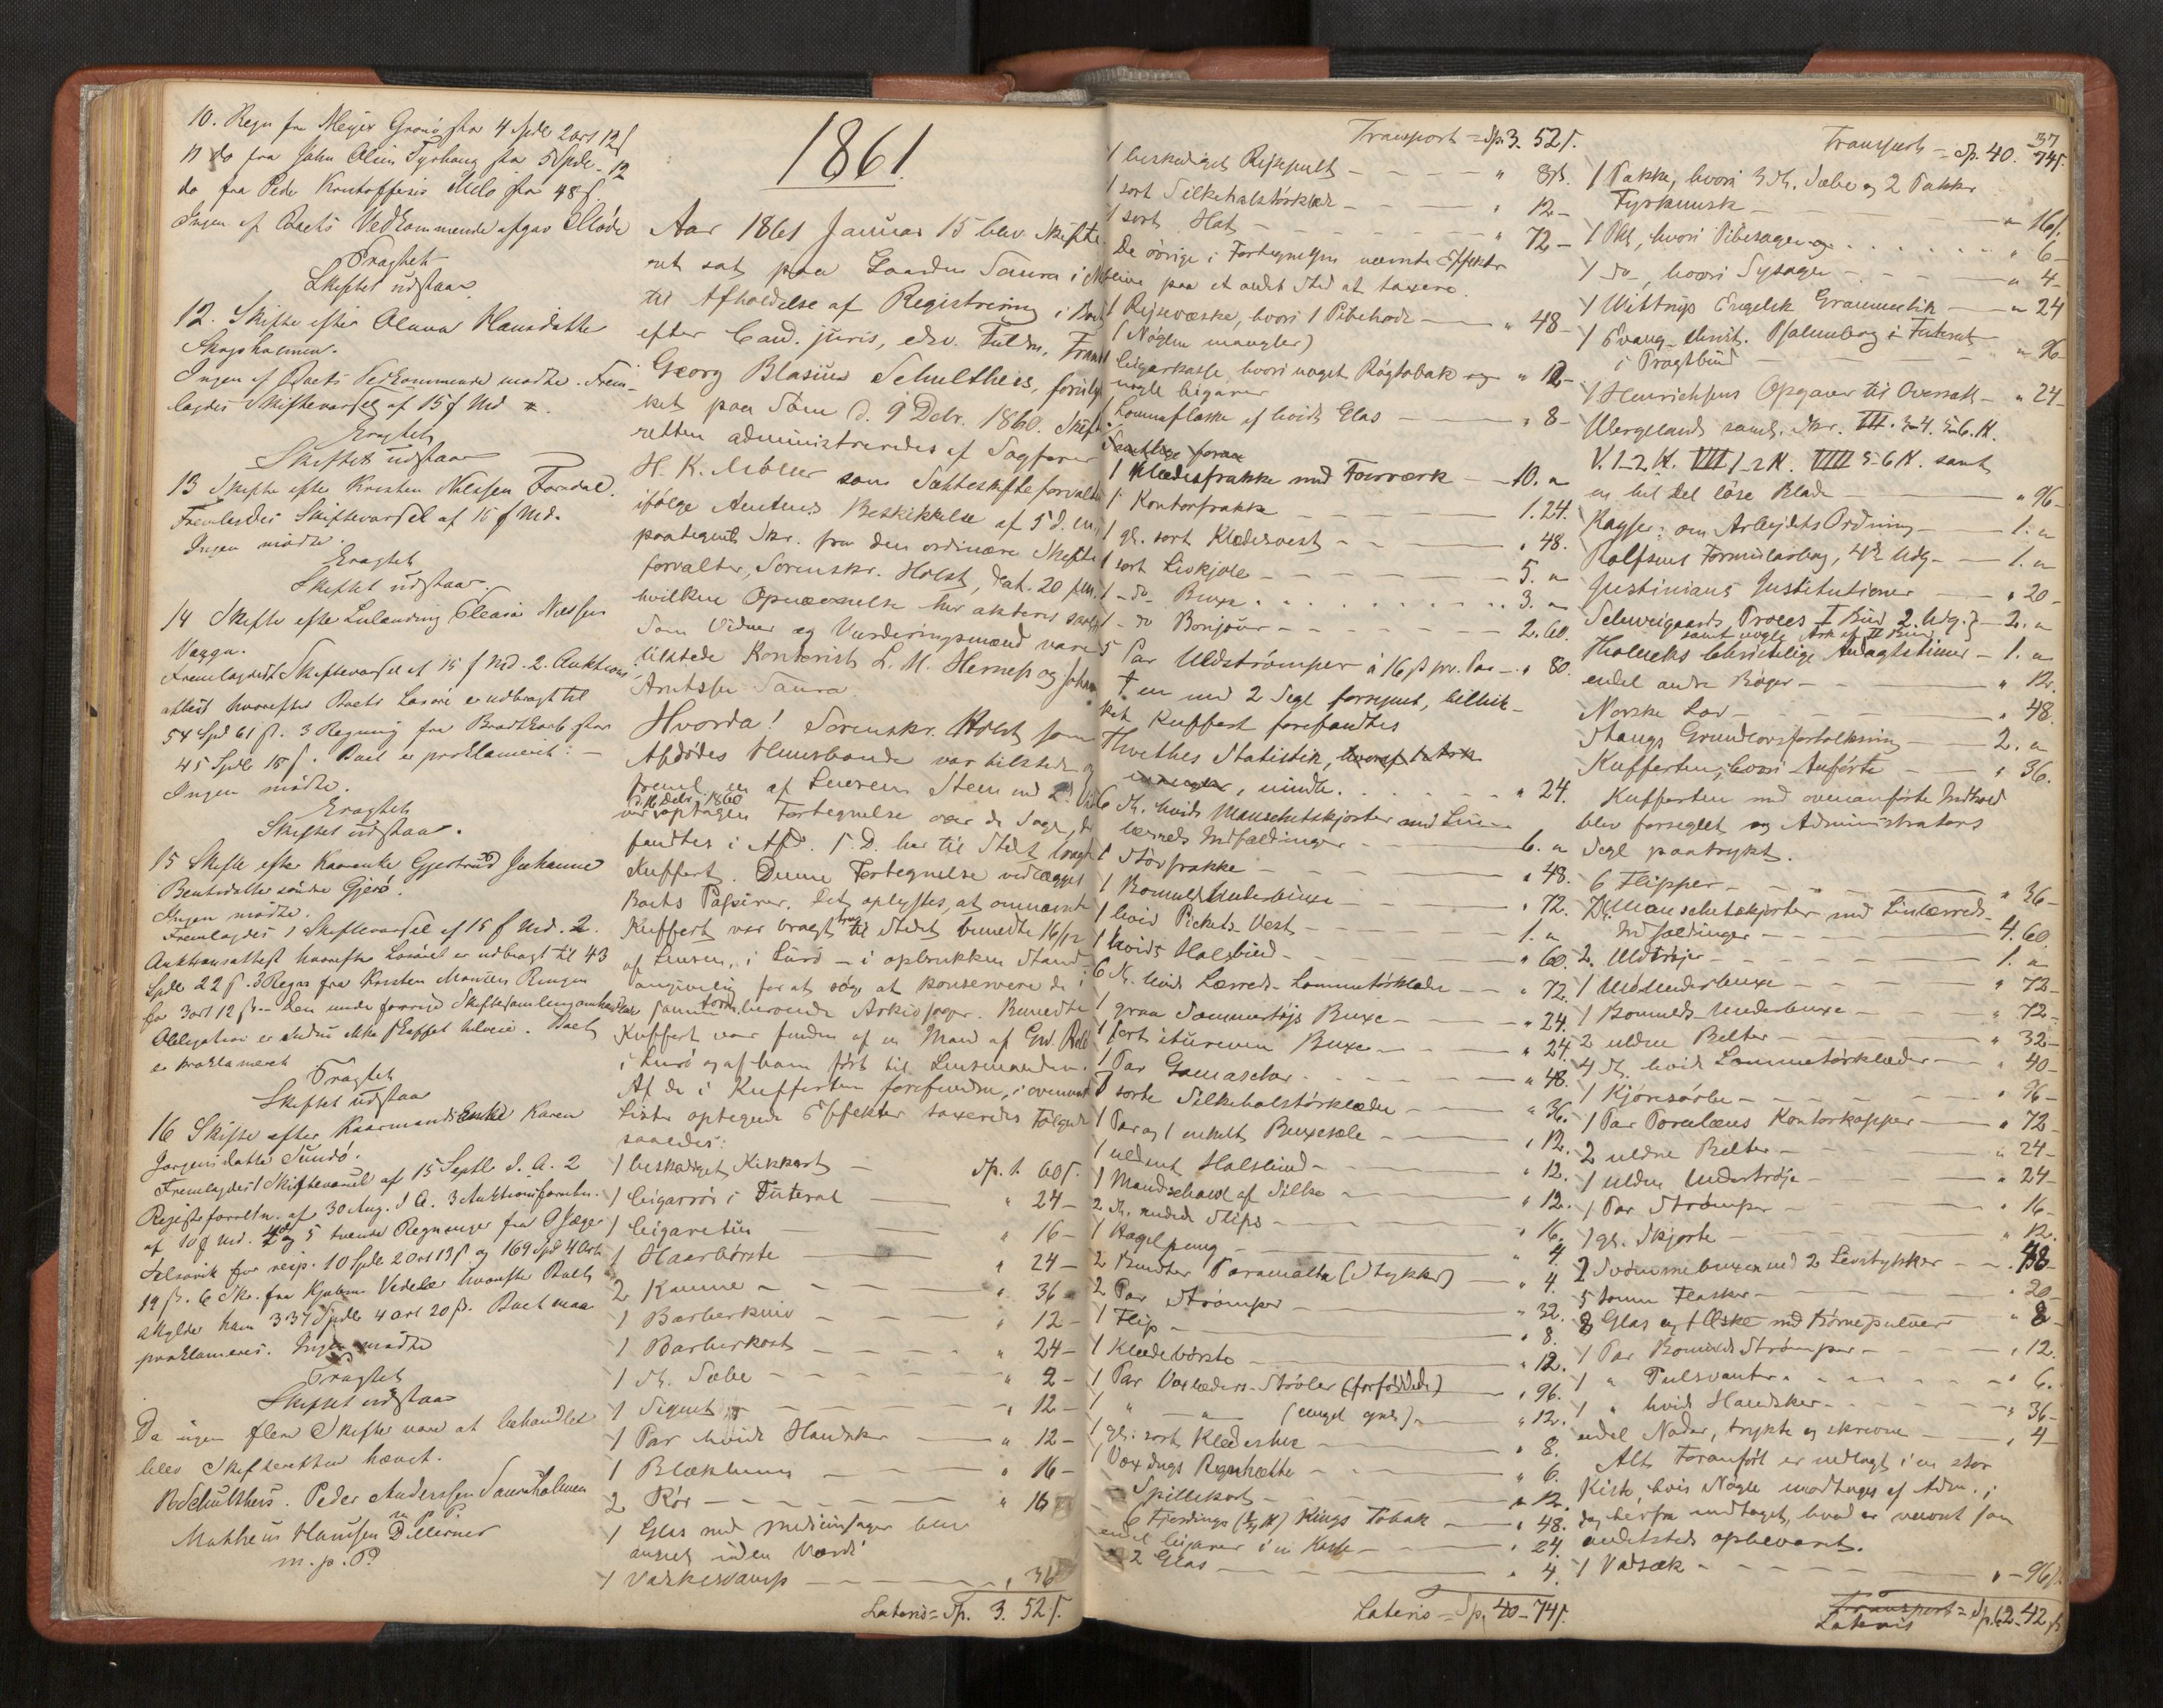 10. Regn fra Meyer Grønø stor 4 Spdl 2 ort 12 ß
11 do fra John Olsen Tyrhaug stor 5 Spdl - 12
do fra Peder Kristoffersen Melø stor 48 ß.
Ingen af Boets Vedkommende afgav Møde
Eragtet
Skiftet udstaar
12. Skifte efter Hansdatter
Ingen af Boets Vedkommende mødte. Frem-
lagdes Skiftevarsel af 15 f Md
Eragtet
Skiftet udstaar
13 Skifte efter Kristen Nilssen Forsdal.
Fremlagdes Skiftevarsel af 15 f Md.
Ingen mødte.
Eragtet
Skiftet udstaar.
14 Skifte efter Eleasar Nilssen
Vaagn.
Fremlagdes 1 Skiftevarsel af 15 f Md. 2. Auktions
attest hvorefter Boets Løsøre er udbragt til
54 Spd 61 ß. 3 Regning fra stor
45 Spdl 18 ß. Boet er proklameret: —
Ingen mødte.
Eragtet
Skiftet udstaar.
15 Skifte efter Gjertrud Johanne
Bentsdatter søndre Gjerø.
Ingen mødte.
Fremlagdes 1 Skiftevarsel af 15 f Md. 2.
Auktionsattest hvorefter Løsøret er udbragt til 43
Spdl 22 ß. 3 Regn fra Kristen
for 3 ort 12 ß. Den under forrige Skiftesamling omhandlede
Obligation er endnu ikke skaffet tilveie. Boet
er proklameret
Eragtet
Skiftet udstaar
16 Skifte efter Enke Karen
Jørgensdatter Sundø.
Fremlagdes 1 Skiftevarsel af 15 Septb d. A. 2
af 30 Aug. d A. 3
af 10 f Md. 4 og 5 tvende Regninger fra
for resp. 10 Spdl 2 Ort 19 ß og 169 Spd 4 Ort
19 ß. 6 Skr. fra hvorefter Boet
skylder ham 337 Spdl 4 ort 20 ß. Boet maa
proklameres. Ingen mødte
Eragtet
Skiftet udstaar
Da ingen flere Skifter vare at behandle
blev Skifteretten hævet.
BSchultheis. Peder Anderssen Sauraholmen
m. p. P.
Matheus Hanssen
m. p. P.
1861.
Aar 1861 Januar 15 blev Skifte-
ret sat paa Gaarden Saura i
til Afholdelse af Registrering i Boet
efter Cand. juris, edsv. Fuldm.
Georg Blasius Schultheis, forulyk-
ket paa Søen d. 9 Debr. 1860. Skifte-
retten administreredes af Sagfører
H. K. Møller som Sætteskifteforvalter
ifølge Amtets Beskikkelse af 5 d.
paategnet Skr. fra den ordinære Skifte
forvalter, Sorenskr. Holst, dat. 20
hvilken Opnævnelse her akteres
Som Vidner og Vurderingsmænd vare
tilstede Kontorist L. M. Herness og Johan
Arntssen Saura.
Hvorda! Sorenskr. Holst som
Afdødes Huusbonde var tilstede og
freml. en af Lensm. Steen med 2 Vidner
d. 16 Debr. 1860
optagen Fortegnelse over de Sager, der
fandtes i Afd. S. D. her til Stedet bragte
Kuffert. Denne Fortegnelse vedlægges
Boets Papirer. Det oplystes, at omnævnte
Kuffert var bragt til Stedet bemeldte 16/12
af Lensm. i Lurø — i opbrukken Stand
angivelig for at søge at konservere de i
samme beroende Arkivsager. Bemeldte
Kuffert var funden af en Mand af Grd.
i Lurø og af ham ført til Lensmanden.
Af de i Kufferten forefundne, i ovennævnte
Liste optegnede Effekter taxeredes følgende
saaledes:
1 beskadiget Kikkert — Sp. 1. 60 ß.
1 Cigarrør i Futeral — " 24 —
1 Cigaretui — " 16 —
1 Haarbørste — " 24 —
2 Kamme — " 36
1 Barberkniv — " 12 —
1 Barberkost — " 24 —
1 St. Sæbe — " 2 —
1 Signet — " 12 —
1 Par hvide Handsker — " 12 —
1 Blækhuus — " 16 —
2 Rør — " 16
1 Glas med Medicinsager blev
anseet uden Værdi
1 Vaskesvamp — " 36
Lateris = Sp. 3. 52 ß.
Transport = Sp. 3. 52 ß.
1 beskadiget Rejsepult — " 8 ß.
1 sort Silkehalstørklæde — " 12 —
1 sort Hat — " 72 —
De øvrige i Fortegnelsen nævnte Effekter
blive paa et andet Sted at taxere.
1 Rejsevæske, hvori 1 Pibehode — " 48 —
(Nøglen mangler)
Cigarkasse hvori noget Røgtobak og " 12 —
nogle Cigarer
1 Lommeflaske af hvidt Glas — " 8 —
1 Klædesfrakke med Foerværk — 10. "
1 Kontorfrakke — 1. 24.
1 gl. sort Klædesvest — " 48.
1 sort Livkjole — 5. "
1 — do Buxe — 3. "
1 — do Bonjour — 2. 60.
5 Par Uldstrømper à 16 ß pr. Par — " 80.
I en med 2 Segl forsynet,
ket Kuffert forefandtes
Thvethes Statistik,
, mindre — " 24.
6 St. hvide Manschetskjorter med Lin-
lærreds Indfældinger — 6. "
1 Støvfrakke — " 48.
1 Bomulds Underbuxe — " 72.
1 hvid Pickets Vest — 1. "
1 hvidt Halsbind — " 60.
6 St. hvide Lærreds-Lommetørklæder — " 72.
1 graa Sommertøjs Buxe — " 24.
1 sort itureven Buxe — " 24.
1 Par Gamascher — " 48.
sorte Silkehalstørklæder — " 36.
1 Par og 1 enkelt Buxesele — " 12.
1 uldent Halsbind — " 12.
1 af Silke — " 12.
2 St. Slips — " 16.
1 Hagelpung — " 4.
2 Bundter Paramatta (Stykker) — " 4.
2 Par Strømper — " 32.
1 Flip — " 8.
1 Klædebørste — " 12.
1 Par Voxlæders-Støvler (forfødede) — " 96.
1 " — " — " 12.
1 gl. sort — " 8.
1 Voxdugs Regnhætte — " 6.
Spillekort — " 12.
6 Fjerdings Kings Tobak — " 48.
endel Cigarer i en Kasse — " 24.
2 Glas — " 4.
Lateris = Sp. 40 — 74 ß.
37
Transport = Sp. 40. 74 ß.
1 Pakke, hvori 3 St. Sæbe og 2 Pakker
Fyrknusk — " 16 ß.
1 Pk, hvori Pibesager — " 6 —
1 do, hvori Sysager — " 4 —
1 Wittrups Engelsk Grammatik — " 24
1 Evang. christ. Psalmebog i Futeral
i Pragtbind — " 96 —
1 Henrichsens Opgaver til Oversæt — " 24 —
Wergelands saml. Skr. III. 3-4. 5-6. H.
V. 1-2 H. VII 1-2 H. VIII 5-6 H. samt
en hel Del løse Blade — " 96 —
Kayser: om Arbejdets Ordning — 1. "
Rolfsens Formularbog, 4de Udg. — 1. "
Justinians Institutioner — " 20 —
Schweigaards Proces I Bind 2. Udg. } 2. "
samt nogle Ark af II Bind
Tholucks christelige Andagtstimer — 1. "
endel andre Bøger — " 12.
Norske Lov — " 48.
Stangs Grundlovsfortolkning — 2. "
Kufferten, hvori Anførte — " 36.
Kufferten med ovenanførte Indhold
blev forseglet og Administrators
Segl paatrykt.
6 Flipper — " 36 —
Manschetskjorter med Linlærreds-
Indfældinger — 4. 60.
2. Uldtrøjer — 1. "
1 Uld Underbuxe — " 72 —
1 Bomulds-Underbuxe — " 72 —
2 uldne Belter — " 32 —
4 St. hvide Lommetørklæder — " 40 —
1 — " 96 —
1 Par Porcelæns Kontorkopper — " 72 —
2 uldne Belter — " 24 —
1 ulden Undertrøje — " 24 —
1 Par Strømper — " 16 —
1 gl. Skjorte — " 12.
2 Svømmebuxer med 2 Livstykker —
5 tomme Flasker — " 20 —
Glas og Æske med — " 8
1 Par Bomulds Strømper — " 12.
1 " Pulsvanter — " 6.
1 " hvide Handsker — " 36 —
endel Noder, trykte og skrevne — " 4 —
Alt Foranført er nedlagt i en stor
Kiste, hvis Nøgle modtoges af Adm. ;
dog herfra undtaget, hvad er nævnt som
andetsteds opbevaret.
1 Vadsæk — " 96 ß
Transport = Sp. 62 - 42 ß
Lateris